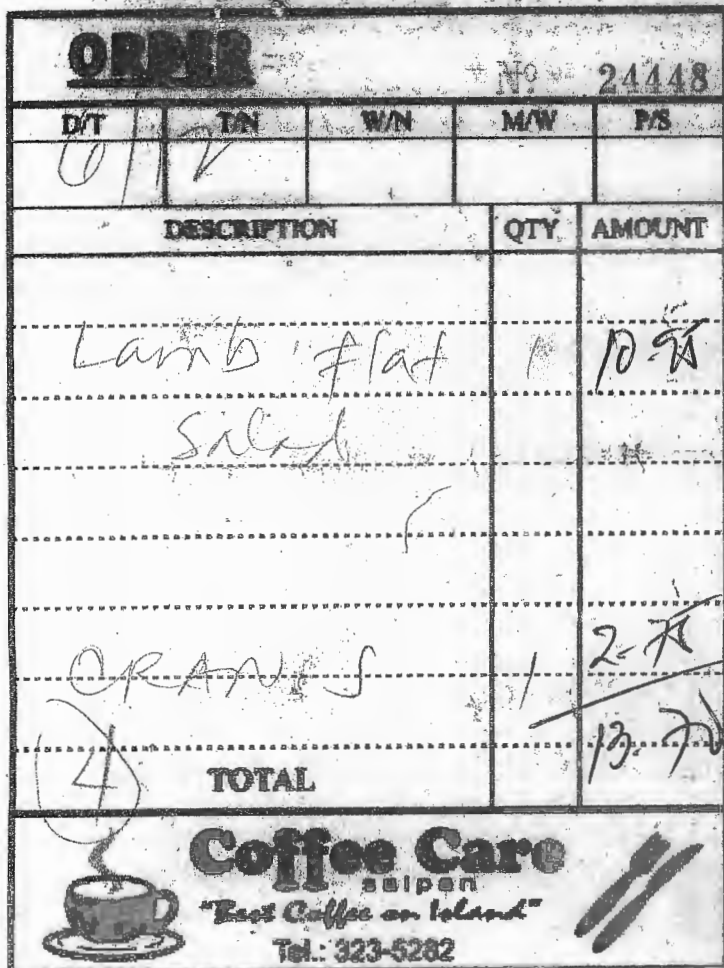 ORDER
Nº 24448
D/T T/N W/N M/W P/S
6/12
DESCRIPTION QTY AMOUNT
Lamb Flat 1
Salad
1
4 TOTAL
Coffee Care
saipan
"Best Coffee on Island"
Tel.: 323-5282